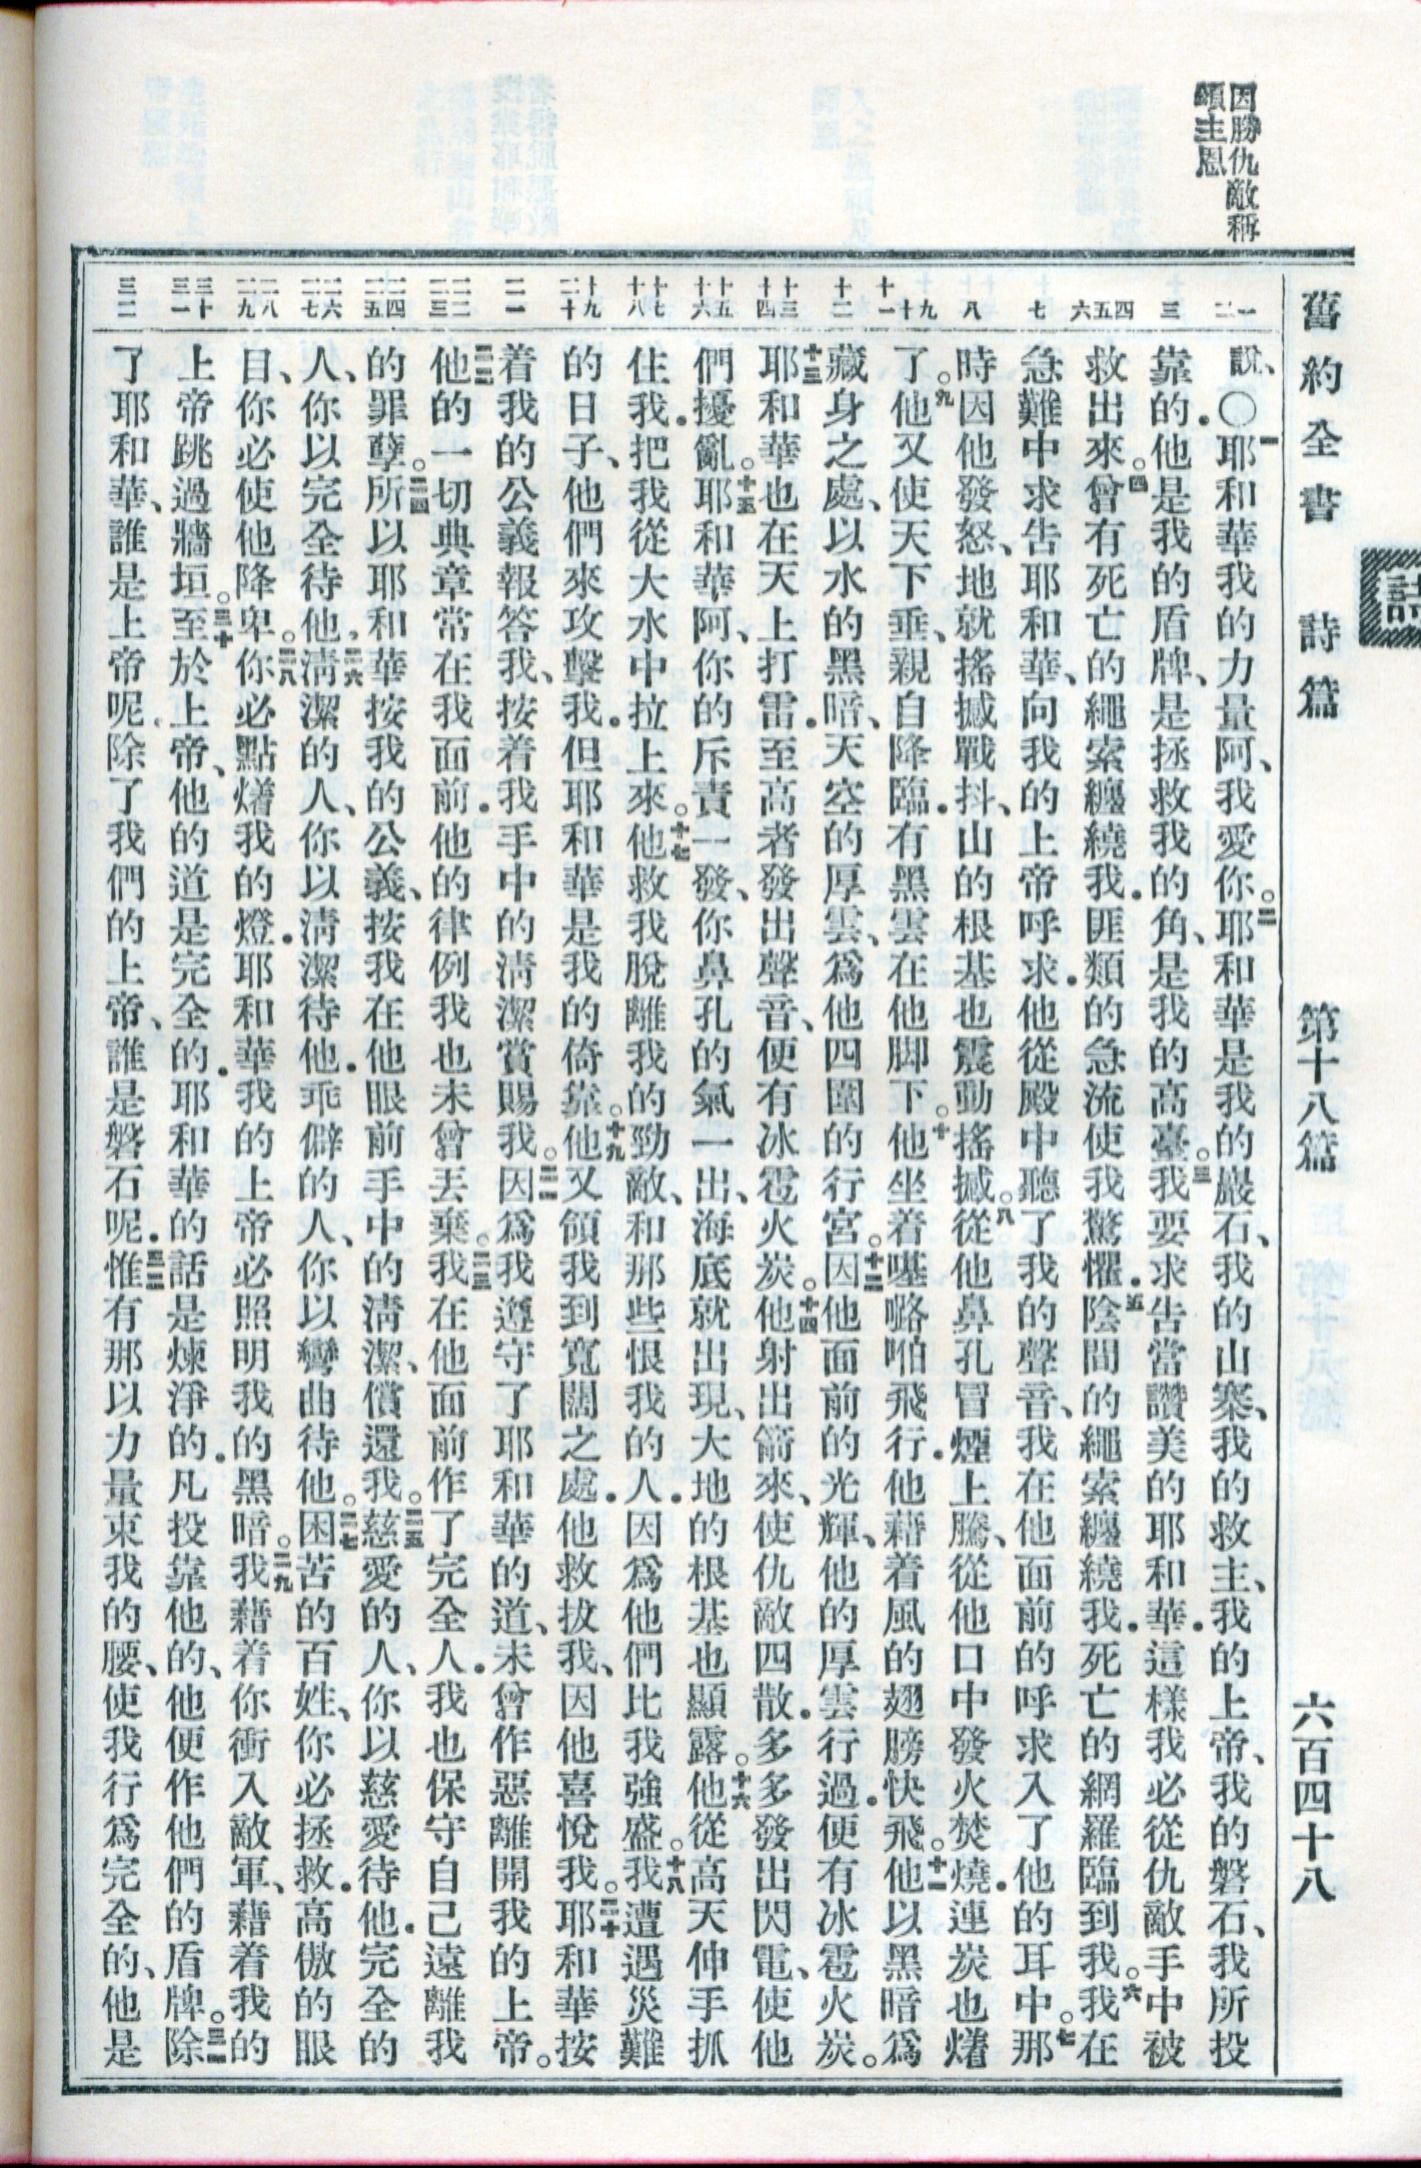 因勝仇敵稱
頌主恩
舊約全書 詩篇 第十八篇 六百四十八
一 二
三
四 五 六
七
八
九 十 十一
十二
十三 十四
十五 十六
十七 十八
十九 二十
二一
二二 二三
二四 二五
二六 二七
二八 二九
三十 三一
三二
說、〇一耶和華我的力量阿、我愛你。二耶和華是我的巖石、我的山寨、我的救主、我的上帝、我的磐石、我所投
靠的．他是我的盾牌、是拯救我的角、是我的高臺。三我要求告當讚美的耶和華．這樣我必從仇敵手中被
救出來。四曾有死亡的繩索纏繞我．匪類的急流使我驚懼．五陰間的繩索纏繞我．死亡的網羅臨到我。六我在
急難中求告耶和華、向我的上帝呼求．他從殿中聽了我的聲音、我在他面前的呼求入了他的耳中。七那
時因他發怒、地就搖撼戰抖、山的根基也震動搖撼。八從他鼻孔冒煙上騰、從他口中發火焚燒．連炭也𤏲
了。九他又使天下垂、親自降臨．有黑雲在他脚下。十他坐着𠼻㗉啪飛行．他藉着風的翅膀快飛。十一他以黑暗爲
藏身之處、以水的黑暗、天空的厚雲、爲他四圍的行宮。十二因他面前的光輝、他的厚雲行過．便有冰雹火炭。
十三耶和華也在天上打雷．至高者發出聲音、便有冰雹火炭。十四他射出箭來、使仇敵四散．多多發出閃電、使他
們擾亂。十五耶和華阿、你的斥責一發、你鼻孔的氣一出、海底就出現、大地的根基也顯露。十六他從高天伸手抓
住我．把我從大水中拉上來。十七他救我脫離我的勁敵、和那些恨我的人．因爲他們比我強盛。十八我遭遇災難
的日子、他們來攻擊我．但耶和華是我的倚靠。十九他又領我到寬闊之處．他救拔我、因他喜悅我。二十耶和華按
着我的公義報答我、按着我手中的淸潔賞賜我。二一因爲我遵守了耶和華的道、未曾作惡離開我的上帝。
二二他的一切典章常在我面前．他的律例我也未曾丟棄。二三我在他面前作了完全人．我也保守自己遠離我
的罪孽。二四所以耶和華按我的公義、按我在他眼前手中的淸潔、償還我。二五慈愛的人、你以慈愛待他．完全的
人、你以完全待他．二六淸潔的人、你以淸潔待他．乖僻的人、你以彎曲待他。二七困苦的百姓、你必拯救．高傲的眼
目、你必使他降卑。二八你必點𤏲我的燈．耶和華我的上帝必照明我的黑暗。二九我藉着你衝入敵軍、藉着我的
上帝跳過牆垣。三十至於上帝、他的道是完全的．耶和華的話是煉淨的．凡投靠他的、他便作他們的盾牌。三一除
了耶和華、誰是上帝呢．除了我們的上帝、誰是磐石呢．三二惟有那以力量束我的腰、使我行爲完全的、他是